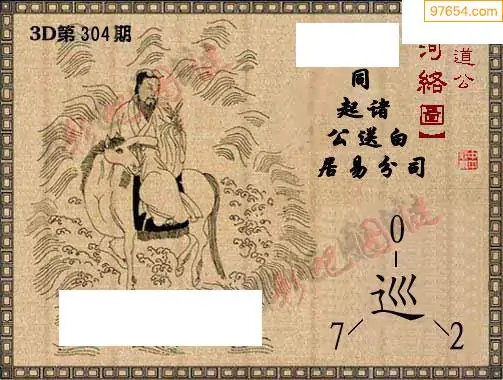 97654.com
3D第304期
道公
河络
【圖】
同
起 诸
公 送 白
居 易 分 司
0
巡
7
2